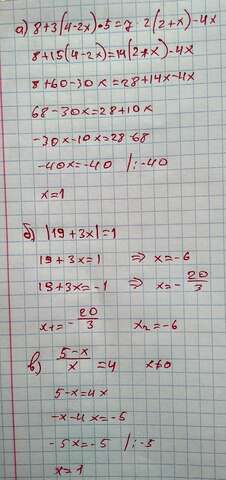 а) 8+3(4-2x)·5=7·2(2+x)-4x
8+15(4-2x)=14(2+x)-4x
8+60-30x=28+14x-4x
68-30x=28+10x
-30x-10x=28-68
-40x=-40 /:-40
x=1
б) |19+3x|=1
19+3x=1 ⇒ x=-6
19+3x=-1 ⇒ x=-20/3
x₁=-20/3 x₂=-6
в) (5-x)/x=4 x≠0
5-x=4x
-x-4x=-5
-5x=-5 /:-5
x=1